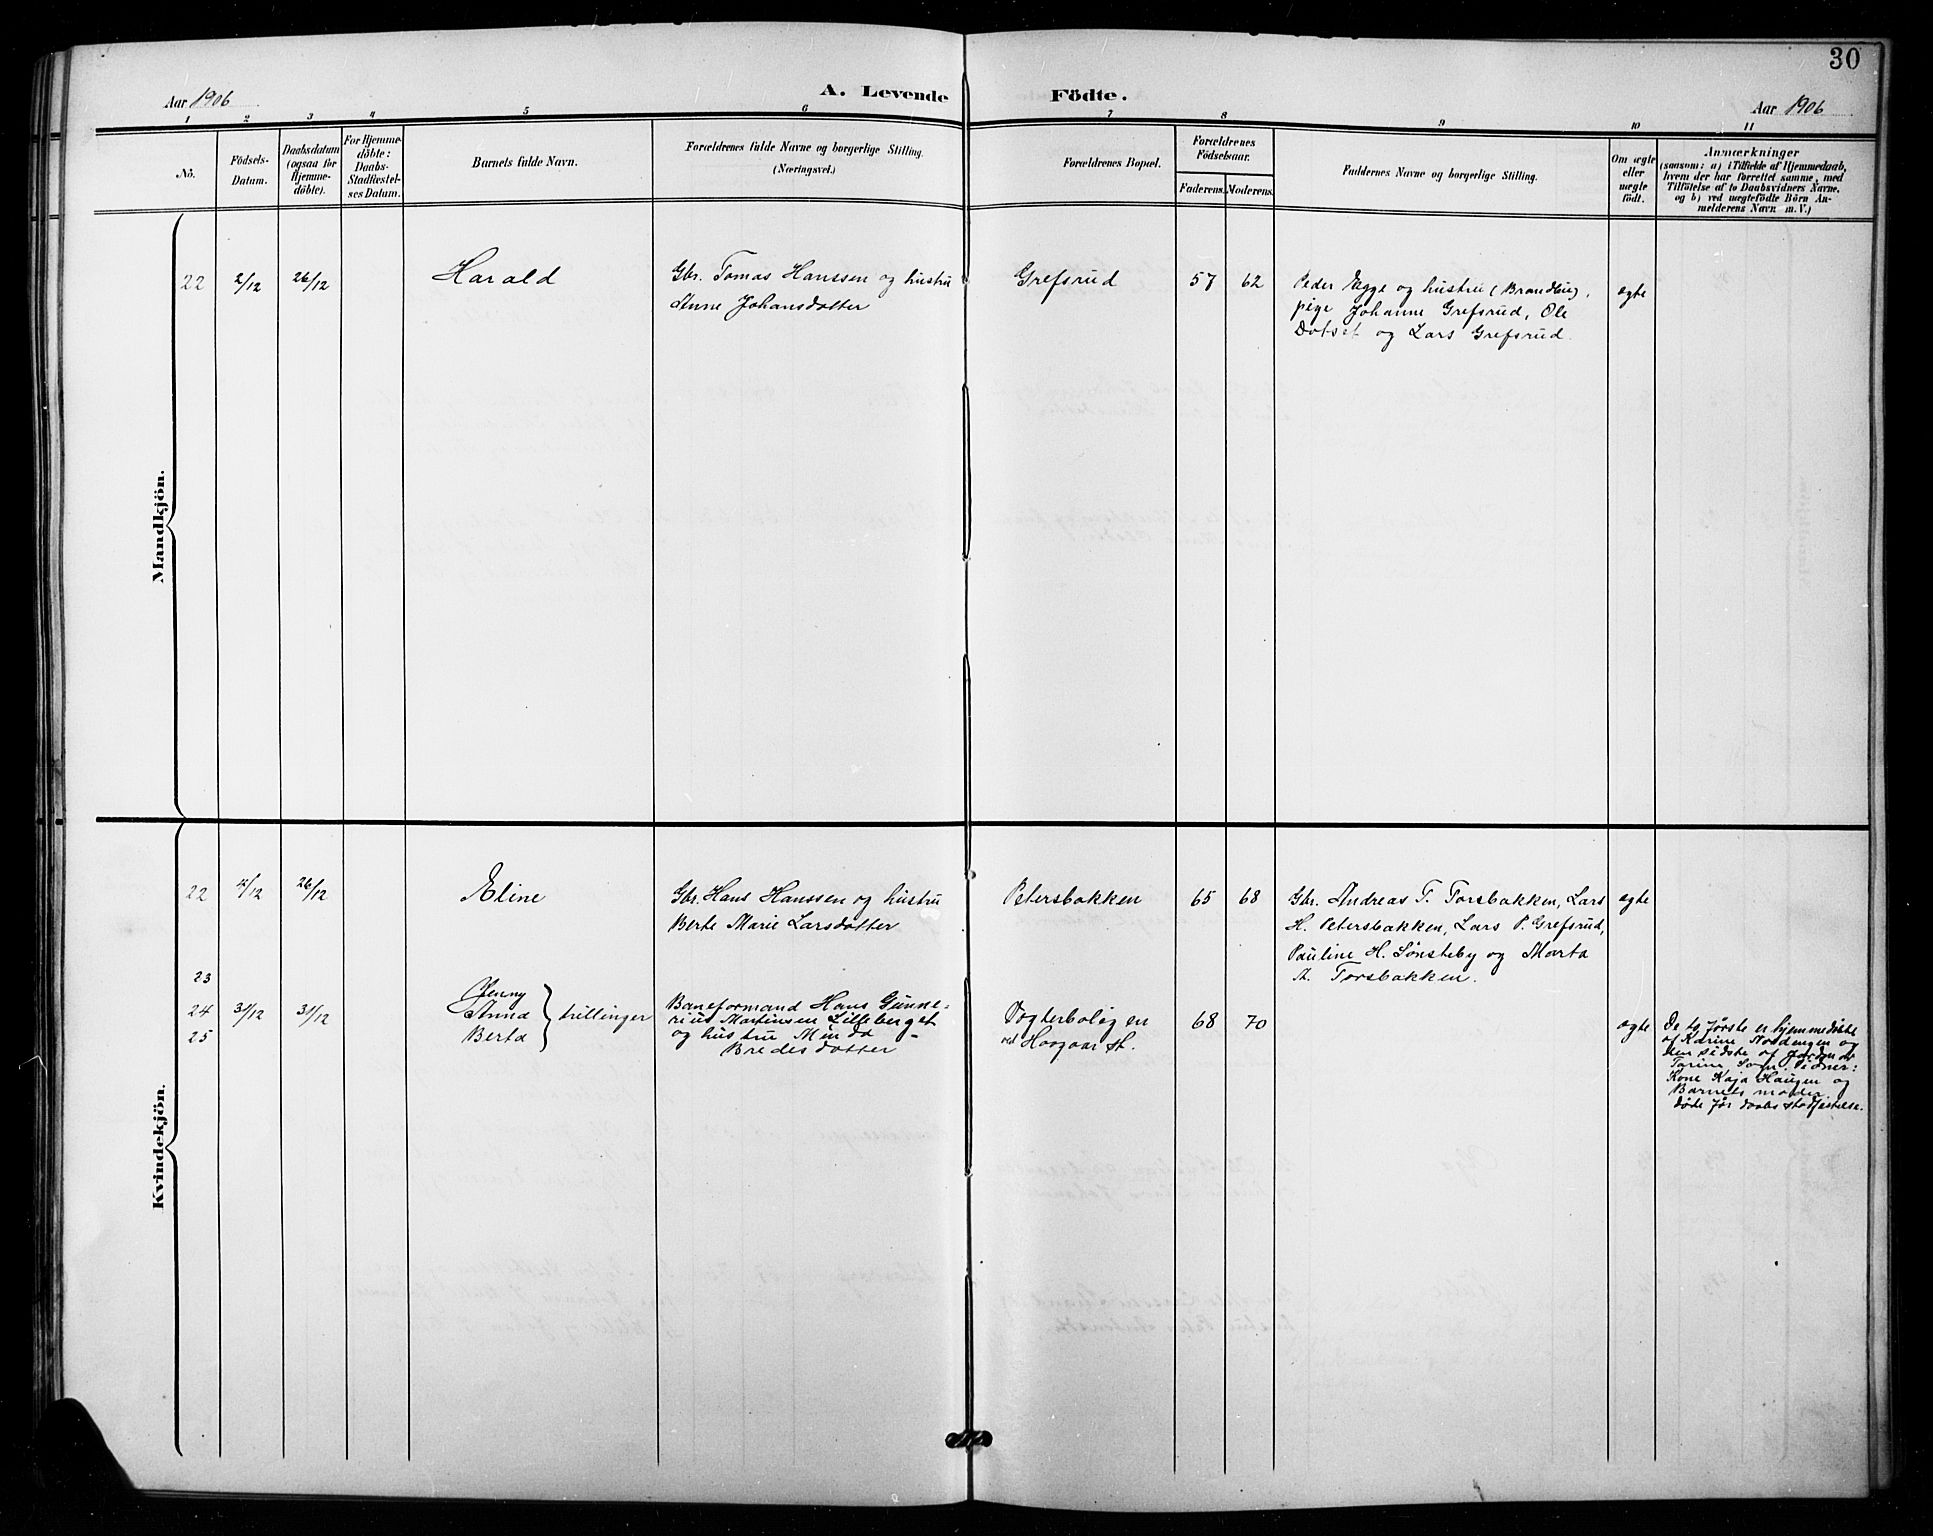 30
Aar 1906
A. Levende Födte.
Aar 1906
1 2 3 4 5 6 7 8 9 10 11
No.
Födsels-Datum.
Daabsdatum (ogsaa för Hjemme-döbte).
For Hjemme-döbte: Daabs-Stadfæstel-ses Datum.
Barnets fulde Navn.
Forældrenes fulde Navne og borgerlige Stilling.
(Næringsvei.)
Forældrenes Bopæl.
Forældrenes Födselsaar.
Faderens. Moderens.
Faddernes Navne og borgerlige Stilling.
Om ægte eller uægte födt.
Anmærkninger
(saasom: a) i Tilfælde af Hjemmedaab,
hvem der har forrettet samme, med
Tilföielse af to Daabsvidners Navne.
og b) ved uægtefödte Börn An-
melderens Navn m. V.)
Mandkjön.
22 2/12 26/12 Harald
Gbr. Tomas Hanssen og hustru
Anne Johansdotter
Grefsrud 57 62
Peder Egge og hustru (Brandbu),
pige Johanne Grefsrud, Ole
og Lars Grefsrud.
egte
Kvindekjön.
22 4/12 26/12 Eline
Gbr. Hans Hanssen og hustru
Berte Marie Larsdotter
Petersbakken 65 68
Gbr. Andreas T. Torsbakken, Lars
H. Petersbakken, Lars P. Grefsrud,
Pauline H. Sønsteby og Marta
A. Torsbakken.
egte
23
24
25
31/12 31/12
Jenny
Anna
Berta
trillinger
Baneformand Hans Gunne-
rius Martinsen Lilleberget
og hustru Minda
Bredesdotter
Vogterboligen
ved Hovgaar st.
68 70
egte
De to første er hjemmedøbte
af Karine Nordengen og
den sidste af jordmor
Torine Vidner:
Kone Kaja Haugen og
Barnets moder.
døde før daabs stadfæstelse.